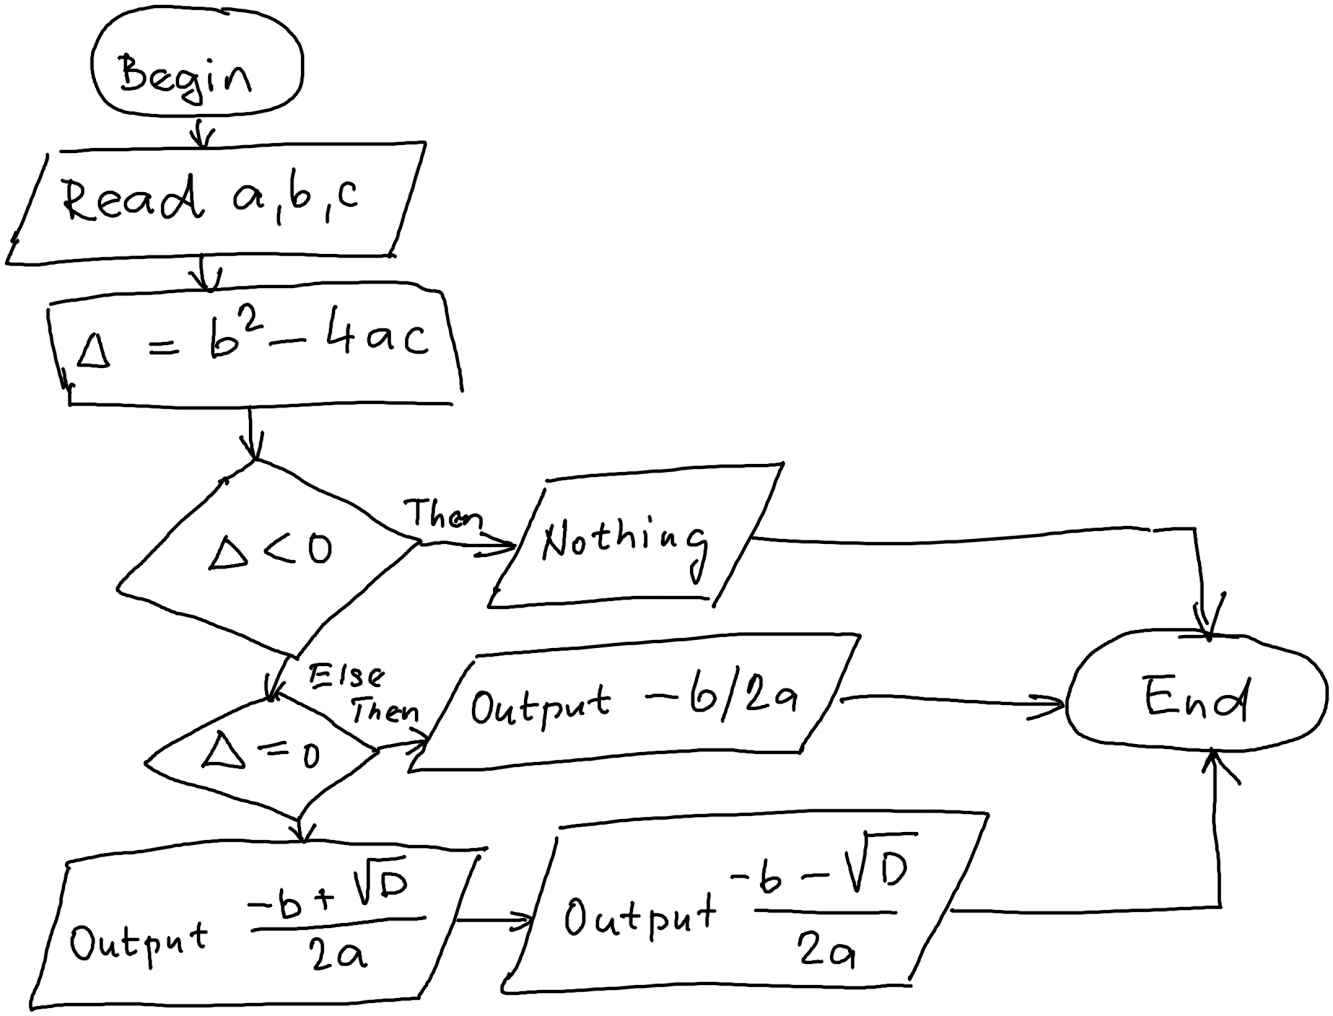 Begin
Read a,b,c
Δ = b² - 4ac
Δ < 0
Then
Nothing
Else
Then
Output -b/2a
End
Δ = 0
Output (-b + √D)/2a
Output (-b - √D)/2a